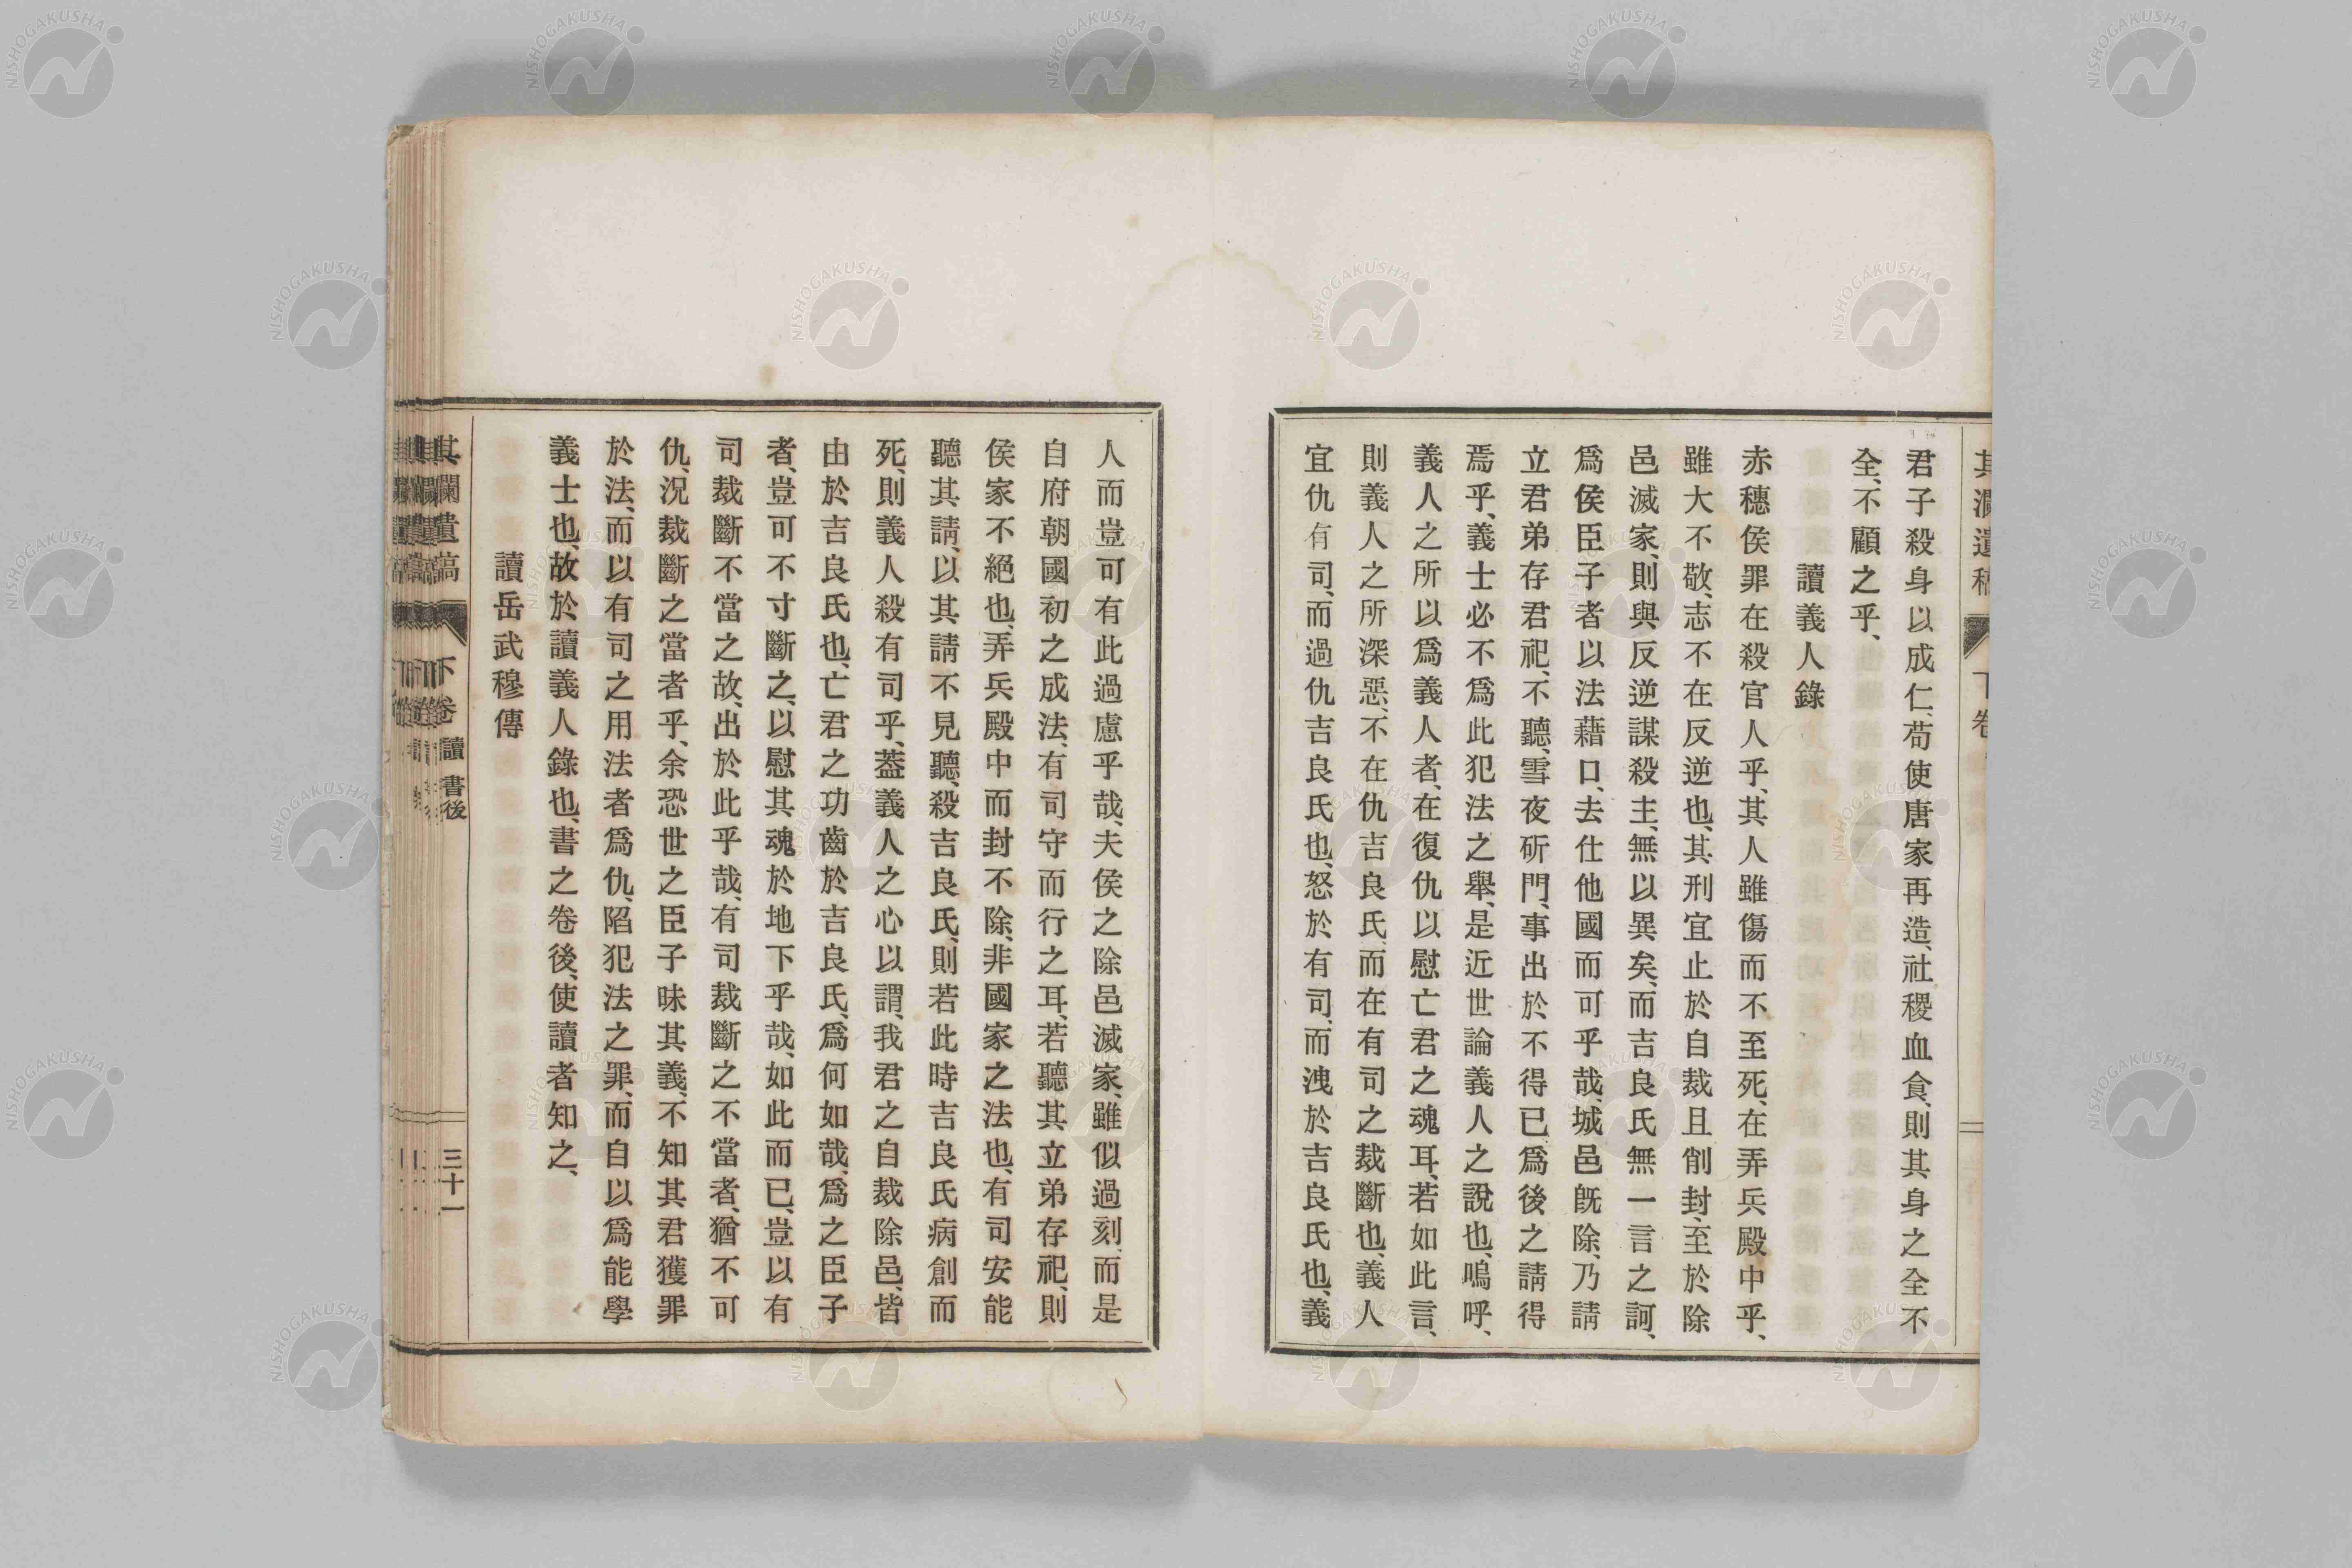 君子殺身以成仁、苟使唐家再造、社稷血食、則其身之全不
全、不顧之乎、
讀義人錄
赤穗侯罪在殺官人乎、其人雖傷而不至死、在弄兵殿中乎、
雖大不敬、志不在反逆也、其刑宜止於自裁且削封、至於除
邑滅家、則與反逆謀殺主、無以異矣、而吉良氏無一言之訶、
爲侯臣子者以法藉口、去仕他國而可乎哉、城邑旣除、乃請
立君弟存君祀、不聽、雪夜斫門、事出於不得已爲後之請得
焉乎、義士必不爲此犯法之舉、是近世論義人之說也、嗚呼、
義人之所以爲義人者、在復仇以慰亡君之魂耳、若如此言、
則義人之所深惡、不在仇吉良氏、而在有司之裁斷也、義人
宜仇有司、而過仇吉良氏也、怒於有司、而洩於吉良氏也、義
人而豈可有此過慮乎哉、夫侯之除邑滅家、雖似過刻、而是
自府朝國初之成法、有司守而行之耳、若聽其立弟存祀、則
侯家不絕也、弄兵殿中而封不除、非國家之法也、有司安能
聽其請、以其請不見聽、殺吉良氏、則若此時吉良氏病創而
死、則義人殺有司乎、蓋義人之心以謂、我君之自裁除邑、皆
由於吉良氏也、亡君之功齒於吉良氏、爲何如哉、爲之臣子
者、豈可不寸斷之、以慰其魂於地下乎哉、如此而已、豈以有
司裁斷不當之故、出於此乎哉、有司裁斷之不當者、猶不可
仇、況裁斷之當者乎、余恐世之臣子昧其義、不知其君獲罪
於法、而以有司之用法者爲仇、陷犯法之罪、而自以爲能學
義士也、故於讀義人錄也、書之卷後、使讀者知之、
讀岳武穆傳
其瀾遺稿
下卷 讀 書後
三十一